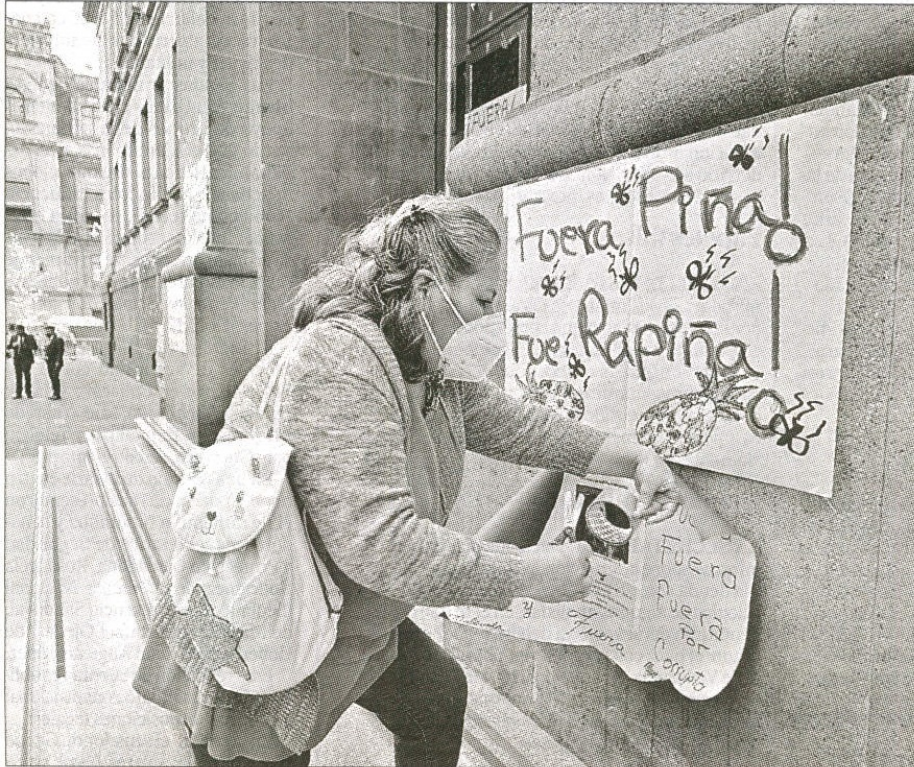 ¡FUERA!
Fuera Piña!
Fue Rapiña!
Fuera
Fuera
Por
Corrupta
y
Fuera